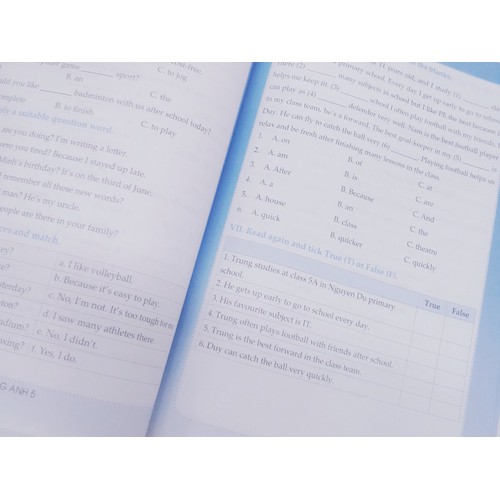 game ______ sport?
B. an
C. to jog
you like ______ badminton with us after school today?
B. to finish
C. the
C. to play
a suitable question word.
are you doing? I'm writing a letter.
were you tired? Because I stayed up late.
birthday? It's on the third of June.
remember all those new words?
man? He's my uncle.
people are there in your family?
and match.
a. I like volleyball.
b. Because it's easy to play.
c. No, I'm not. It's too tough for
d. I saw many athletes there
e. No, I didn't.
f. Yes, I do.
G ANH 5
11 years old, and I study (1)
primary school. Every day I get up early to go to
helps me keep fit. (3) ______ many subjects in school but I like PE the best, because
can play as (4) ______ school I often play football with my friends. I
in my class team, he's a forward. The best goal-keeper in my (5) ______ is
Duy. He can fly to catch the ball very (6) ______. Playing football helps us
relax and be fresh after finishing many lessons in the class.
1. A. on B. of C. at
2. A. am B. is C. are
3. A. After B. Because C. And
4. A. a B. an C. the
5. A. house B. class C. theatre
6. A. quick B. quicker C. quickly
VII. Read again and tick True (T) or False (F).
True False
1. Trung studies at class 5A in Nguyen Du primary
school.
2. He gets up early to go to school every day.
3. His favourite subject is IT.
4. Trung often plays football with friends after school.
5. Trung is the best forward in the class team.
6. Duy can catch the ball very quickly.